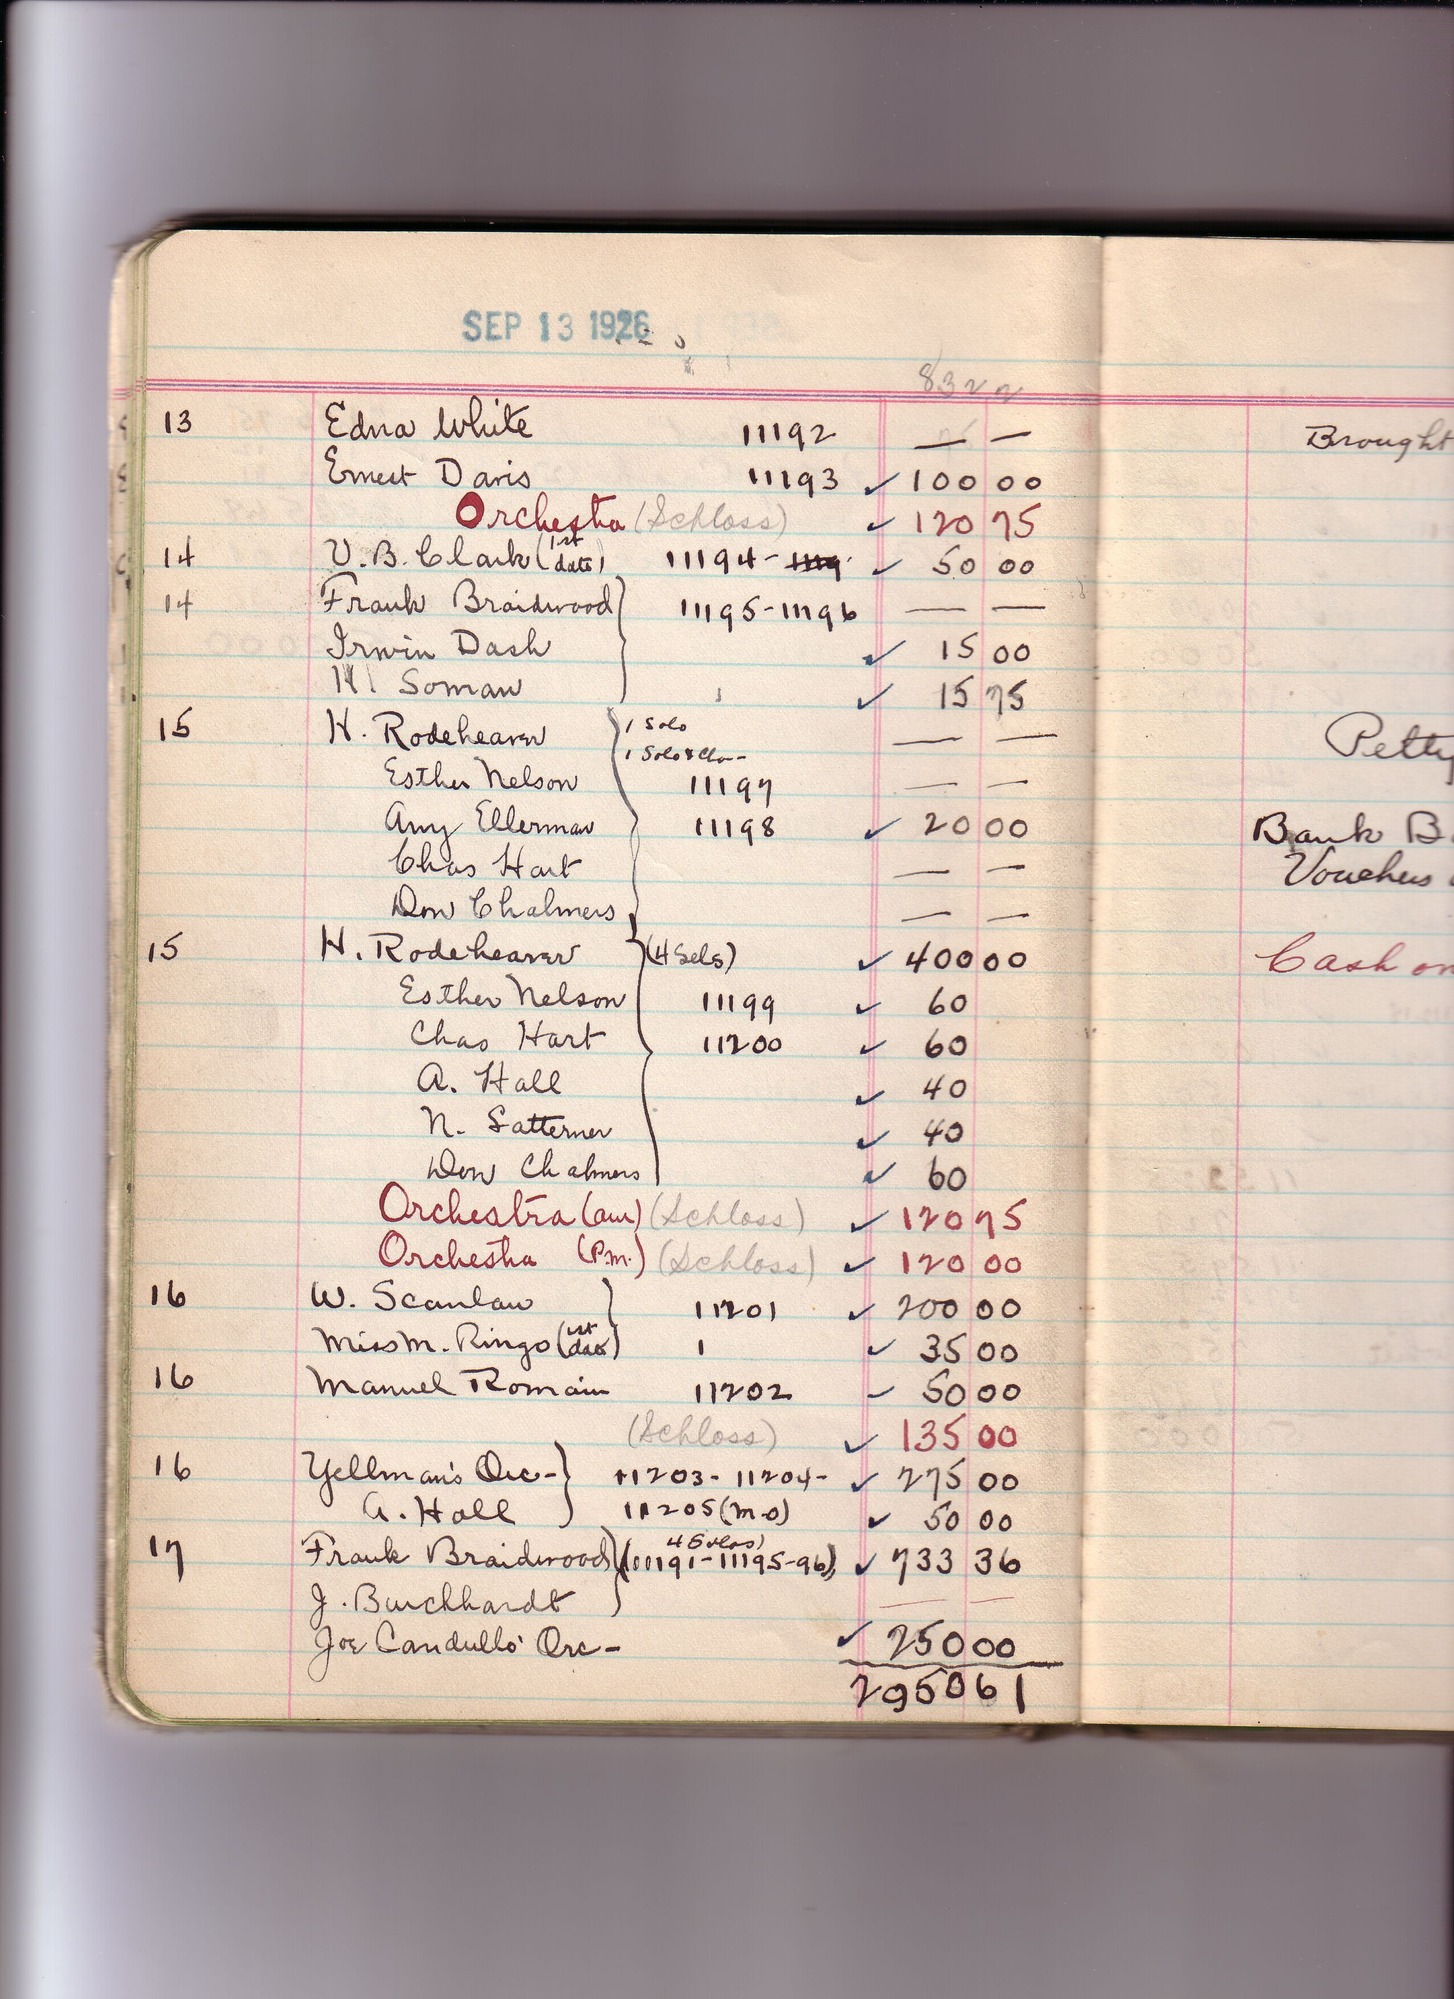 SEP 13 1926
8322
13 Edna White 11192 — —
Ernest Davis 11193 ✓ 100 00
Orchestra (Schloss) ✓ 120 75
14 V. B. Clark (1st date) 11194- ✓ 50 00
14 Frank Braidwood 11195-11196 — —
Irwin Dash ✓ 15 00
Soman ✓ 15 75
15 H. Rodeheaver 1 Solo — —
1 Solo & Cho-
Esther Nelson 11197 — —
Amy Ellerman 11198 ✓ 20 00
Chas Hart — —
Don Chalmers — —
15 H. Rodeheaver (4 Sels) ✓ 400 00
Esther Nelson 11199 ✓ 60
Chas Hart 11200 ✓ 60
A. Hall ✓ 40
N. Satterner ✓ 40
Don Chalmers ✓ 60
Orchestra (am) (Schloss) ✓ 120 75
Orchestra (P.m.) (Schloss) ✓ 120 00
16 W. Scanlan 11201 ✓ 200 00
Miss M. Ringo (1st date) 1 ✓ 35 00
16 Manuel Romain 11202 ✓ 50 00
(Schloss) ✓ 135 00
16 Yellman's Orc- 11203- 11204- ✓ 275 00
A. Hall 11205 (M-O) ✓ 50 00
17 Frank Braidwood (11191-11195-96) ✓ 733 36
J. Burchhardt — —
Joe Candullo' Orc- ✓ 250 00
2950 61
Brought
Petty
Bank B
Vouchers
Cash on